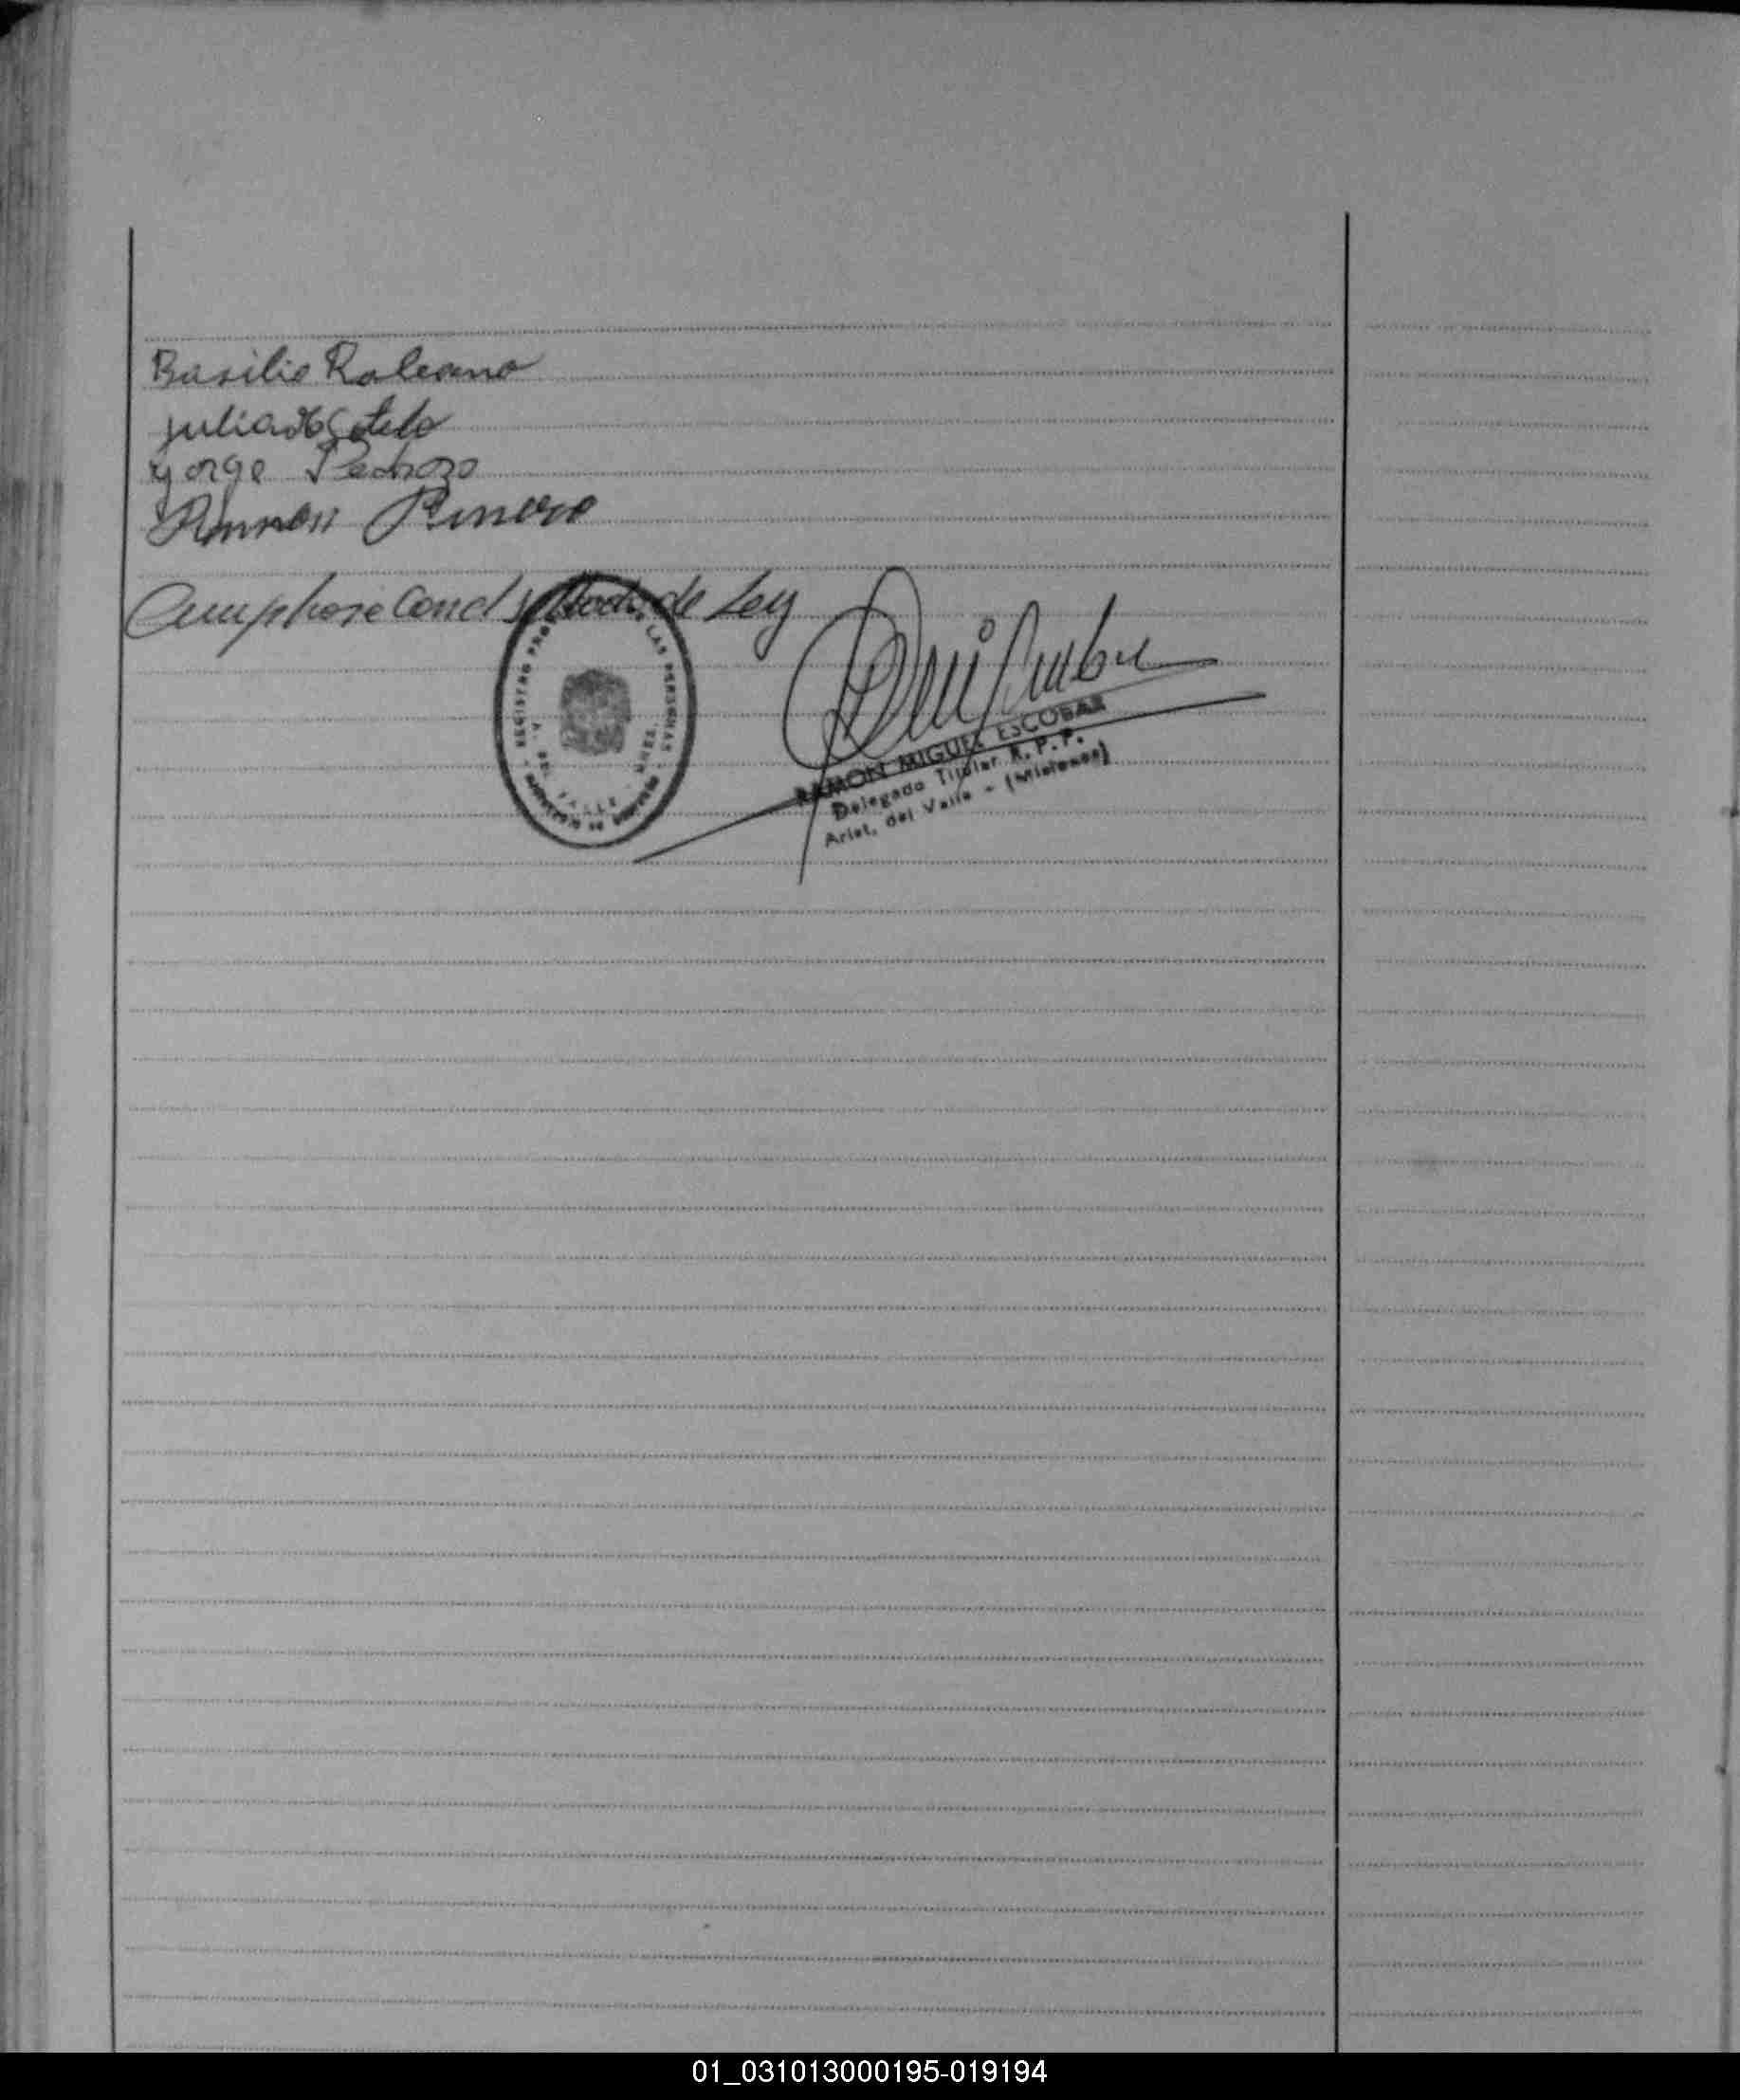 Basilio Roleano
Julia Sotelo
Yorge Pedrozo
Ramon Pinero
de Ley
REGISTRO LAS PERSONAS
A. DEL VALLE - MNES.
RAMON MIGUEL ESCOBAR
Delegado Titular R.P.P.
Arist. del Valle - (Misiones)
01_031013000195-019194